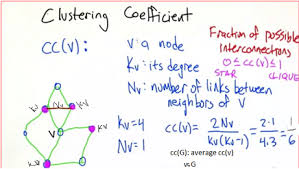 Clustering Coefficient
CC(V):
V: a node
Kv: its degree
Nv: number of links between
neighbors of V
Fraction of possible
interconnections
0 ≤ CC(V) ≤ 1
STAR CLIQUE
Kv Nv KV
V
KV KV
Kv=4
Nv=1
CC(V) = 2Nv / Kv(Kv-1) = 2·1 / 4·3 = 1/6
cc(G): average cc(v)
v∈G